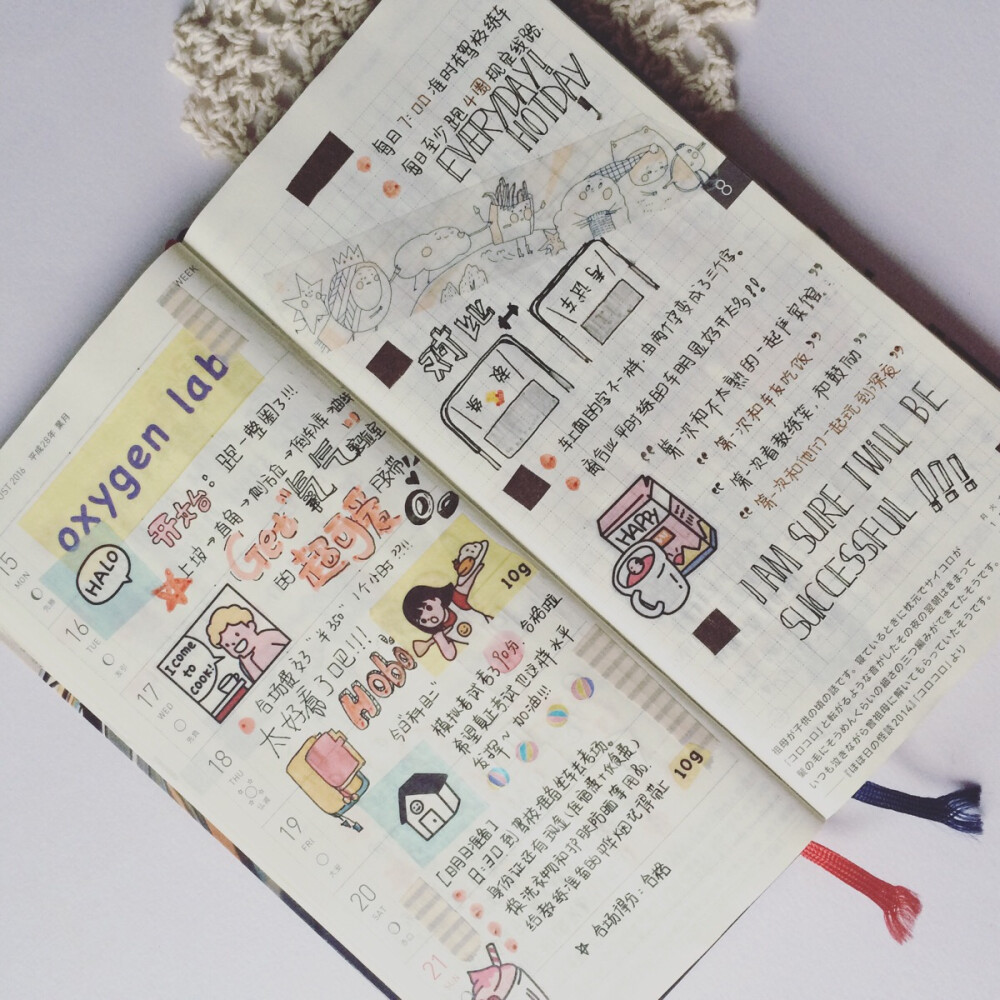 WEEK
平成28年 葉月
UST 2016
oxygen lab
15
MON
HALO
16
TUE
17
WED
18
THU
19
FRI
20
SAT
21
开始：跑一整圈了!!!
上坡→直角→侧方位→倒车库
Get "氧气实验室"
的超可爱
胶带
I come
to
cook!
合场费好了 "¥350" 1个小时??!!
太好看了吧!!!
Hobo
10g
今日科目二
模拟考试考了90分 合格啦
希望真正考试也这样水平
发挥~ 加油!!!
[明日准备]
日:30到驾校准备坐车去考场。
身份证还有现金(住宿费+伙食费)
换洗衣物和护肤防晒等用品.
给教练准备的哗烟记得带上
10g
☆ 合场得分: 合格
每日7:00准时在驾校练车
每日至少跑4圈规定线路.
EVERYDAY!
HOTDAY!
8
对比
考试车
车上面的字不一样. 由两个字变成了三个字。
离合比平时练的车明显好开太多!!
"第一次和不太熟的一起住宾馆"
"第一次和车友吃饭"
"第一次看教练笑, 和鼓励"
"第一次和他们一起玩到深夜"
HAPPY
I AM SURE I WILL BE
SUCCESSFUL !!!
祖母が子供の頃の話です。寝ているときに枕元でサイコロが
「コロコロ」と転がるような音がしたその夜の翌朝はきまって
髪の毛にそうめんくらいの細さの三つ編みができてたそうです。
いつも泣きながら曽祖母に解いてもらっていたそうです。
『ほぼ日の怪談2014』「コロコロ」より